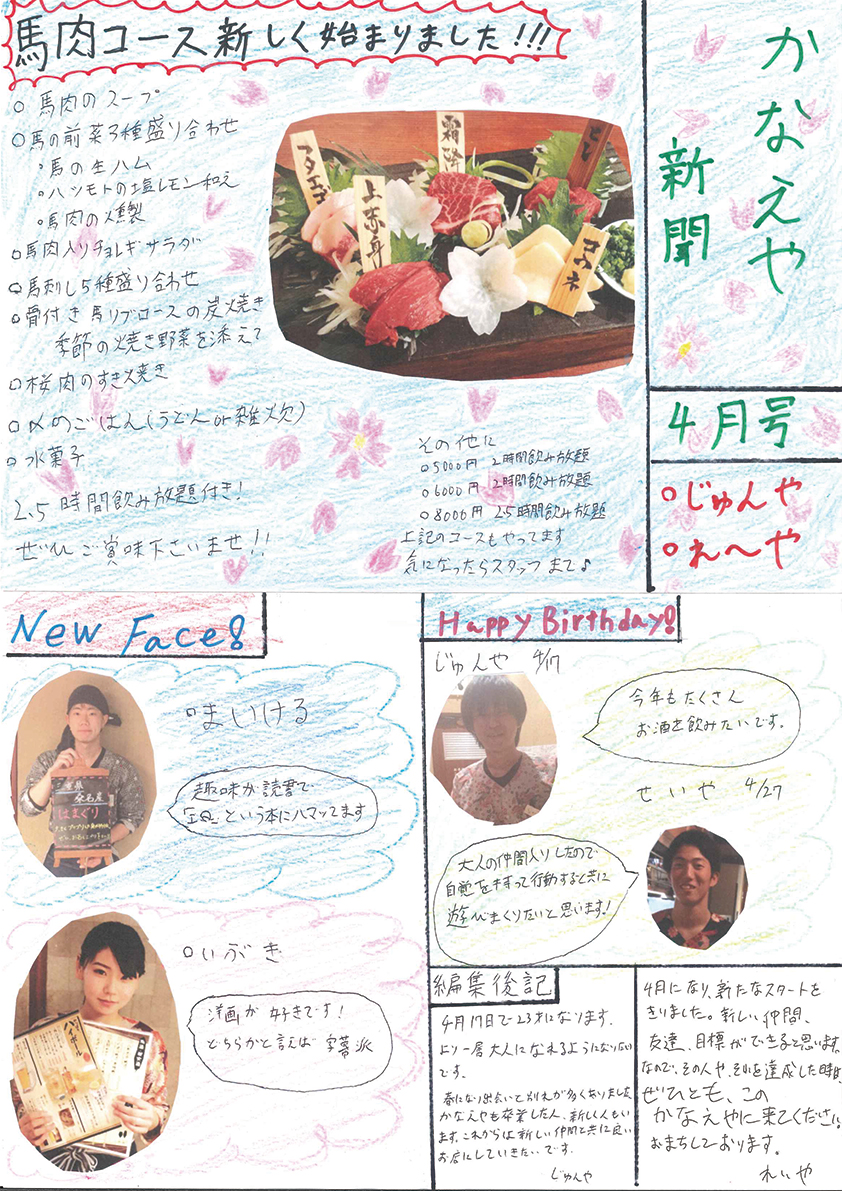 かなえや
新聞
4月号
○じゅんや
○れ〜や
馬肉コース新しく始まりました!!!
○馬肉のスープ
○馬の前菜3種盛り合わせ
・馬の生ハム
・ハツモトの塩レモン和え
・馬肉の燻製
○馬肉入りチョレギサラダ
○馬刺し5種盛り合わせ
○骨付き馬リブロースの炭焼き
季節の焼き野菜を添えて
○桜肉のすき焼き
○〆のごはん(うどんor雑炊)
○水菓子
2.5時間飲み放題付き!
ぜひご賞味下さいませ!!
フタエゴ
上赤身
霜降
ヒレ
コウネ
その他に
○5000円 2時間飲み放題
○6000円 2時間飲み放題
○8000円 2.5時間飲み放題
上記のコースもやってます
気になったらスタッフまで♪
New Face!
○まいける
趣味が読書で
「I.Q.」という本にハマッてます
桑名産
はまぐり
○いぶき
洋画が好きです!
どちらかと言えば字幕派
ハイボール
Happy Birthday!
じゅんや 4/17
今年もたくさん
お酒を飲みたいです。
せいや 4/27
大人の仲間入りしたので
自覚をもって行動すると共に
遊びまくりたいと思います!
編集後記
4月17日で23才になります。
より一層大人になれるようになりたい
です。
春になり出会いと別れが多くありました
かなえやも卒業した人、新しい人もい
ます。これからは新しい仲間と共に良い
お店にしていきたいです。
じゅんや
4月になり、新たなスタートを
きりました。新しい仲間、
友達、目標ができると思います。
なので、その人や、それを達成した時は、
ぜひとも、この
かなえやに来てください。
おまちしております。
れいや